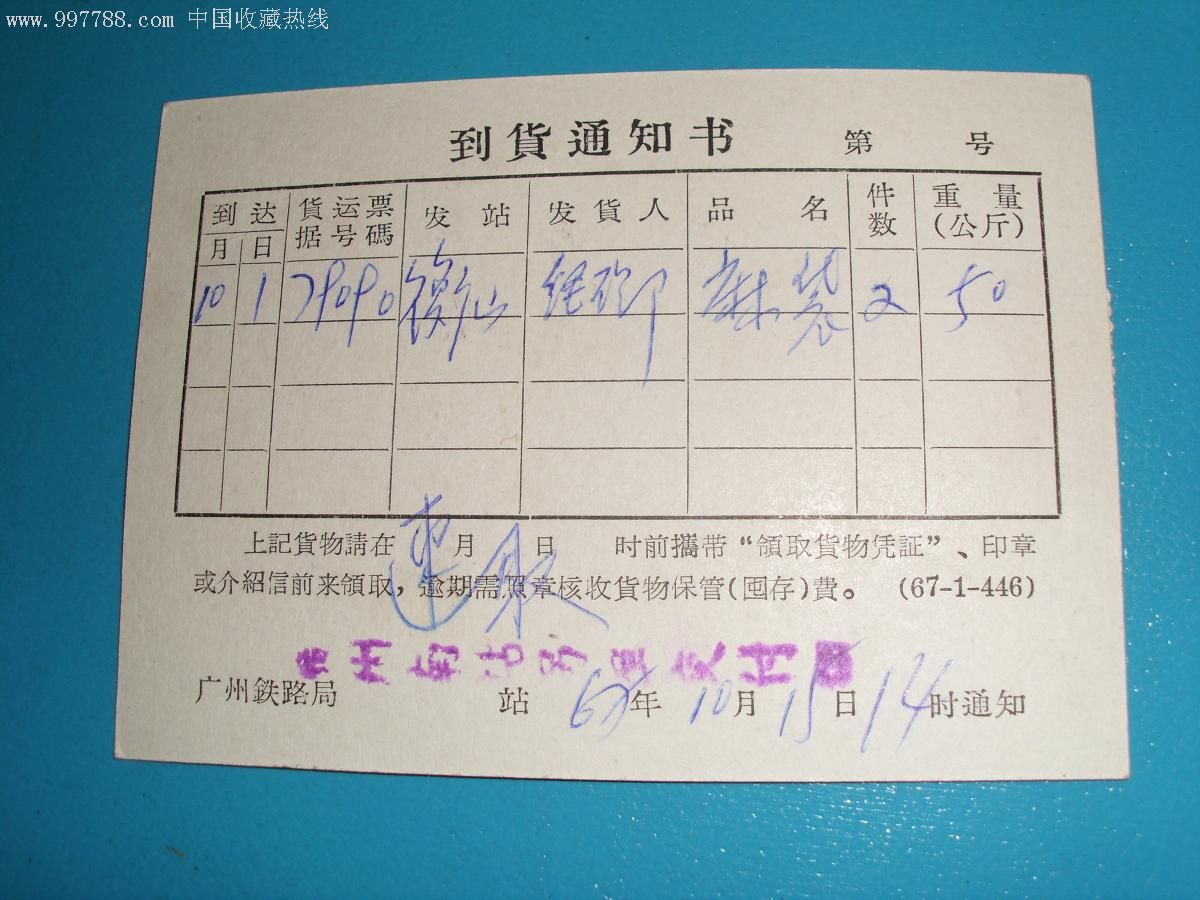 www.997788.com 中国收藏热线
到貨通知书 第 号
到达 貨运票据号碼 发站 发貨人 品名 件数 重量(公斤)
月 日
10 1 79090 麻袋 2 50
上記貨物請在 月 日 时前攜带“領取貨物凭証”、印章
速取
或介紹信前来領取，逾期需照章核收貨物保管(囤存)費。 (67-1-446)
广州鉄路局 站 年 10月15日14时通知